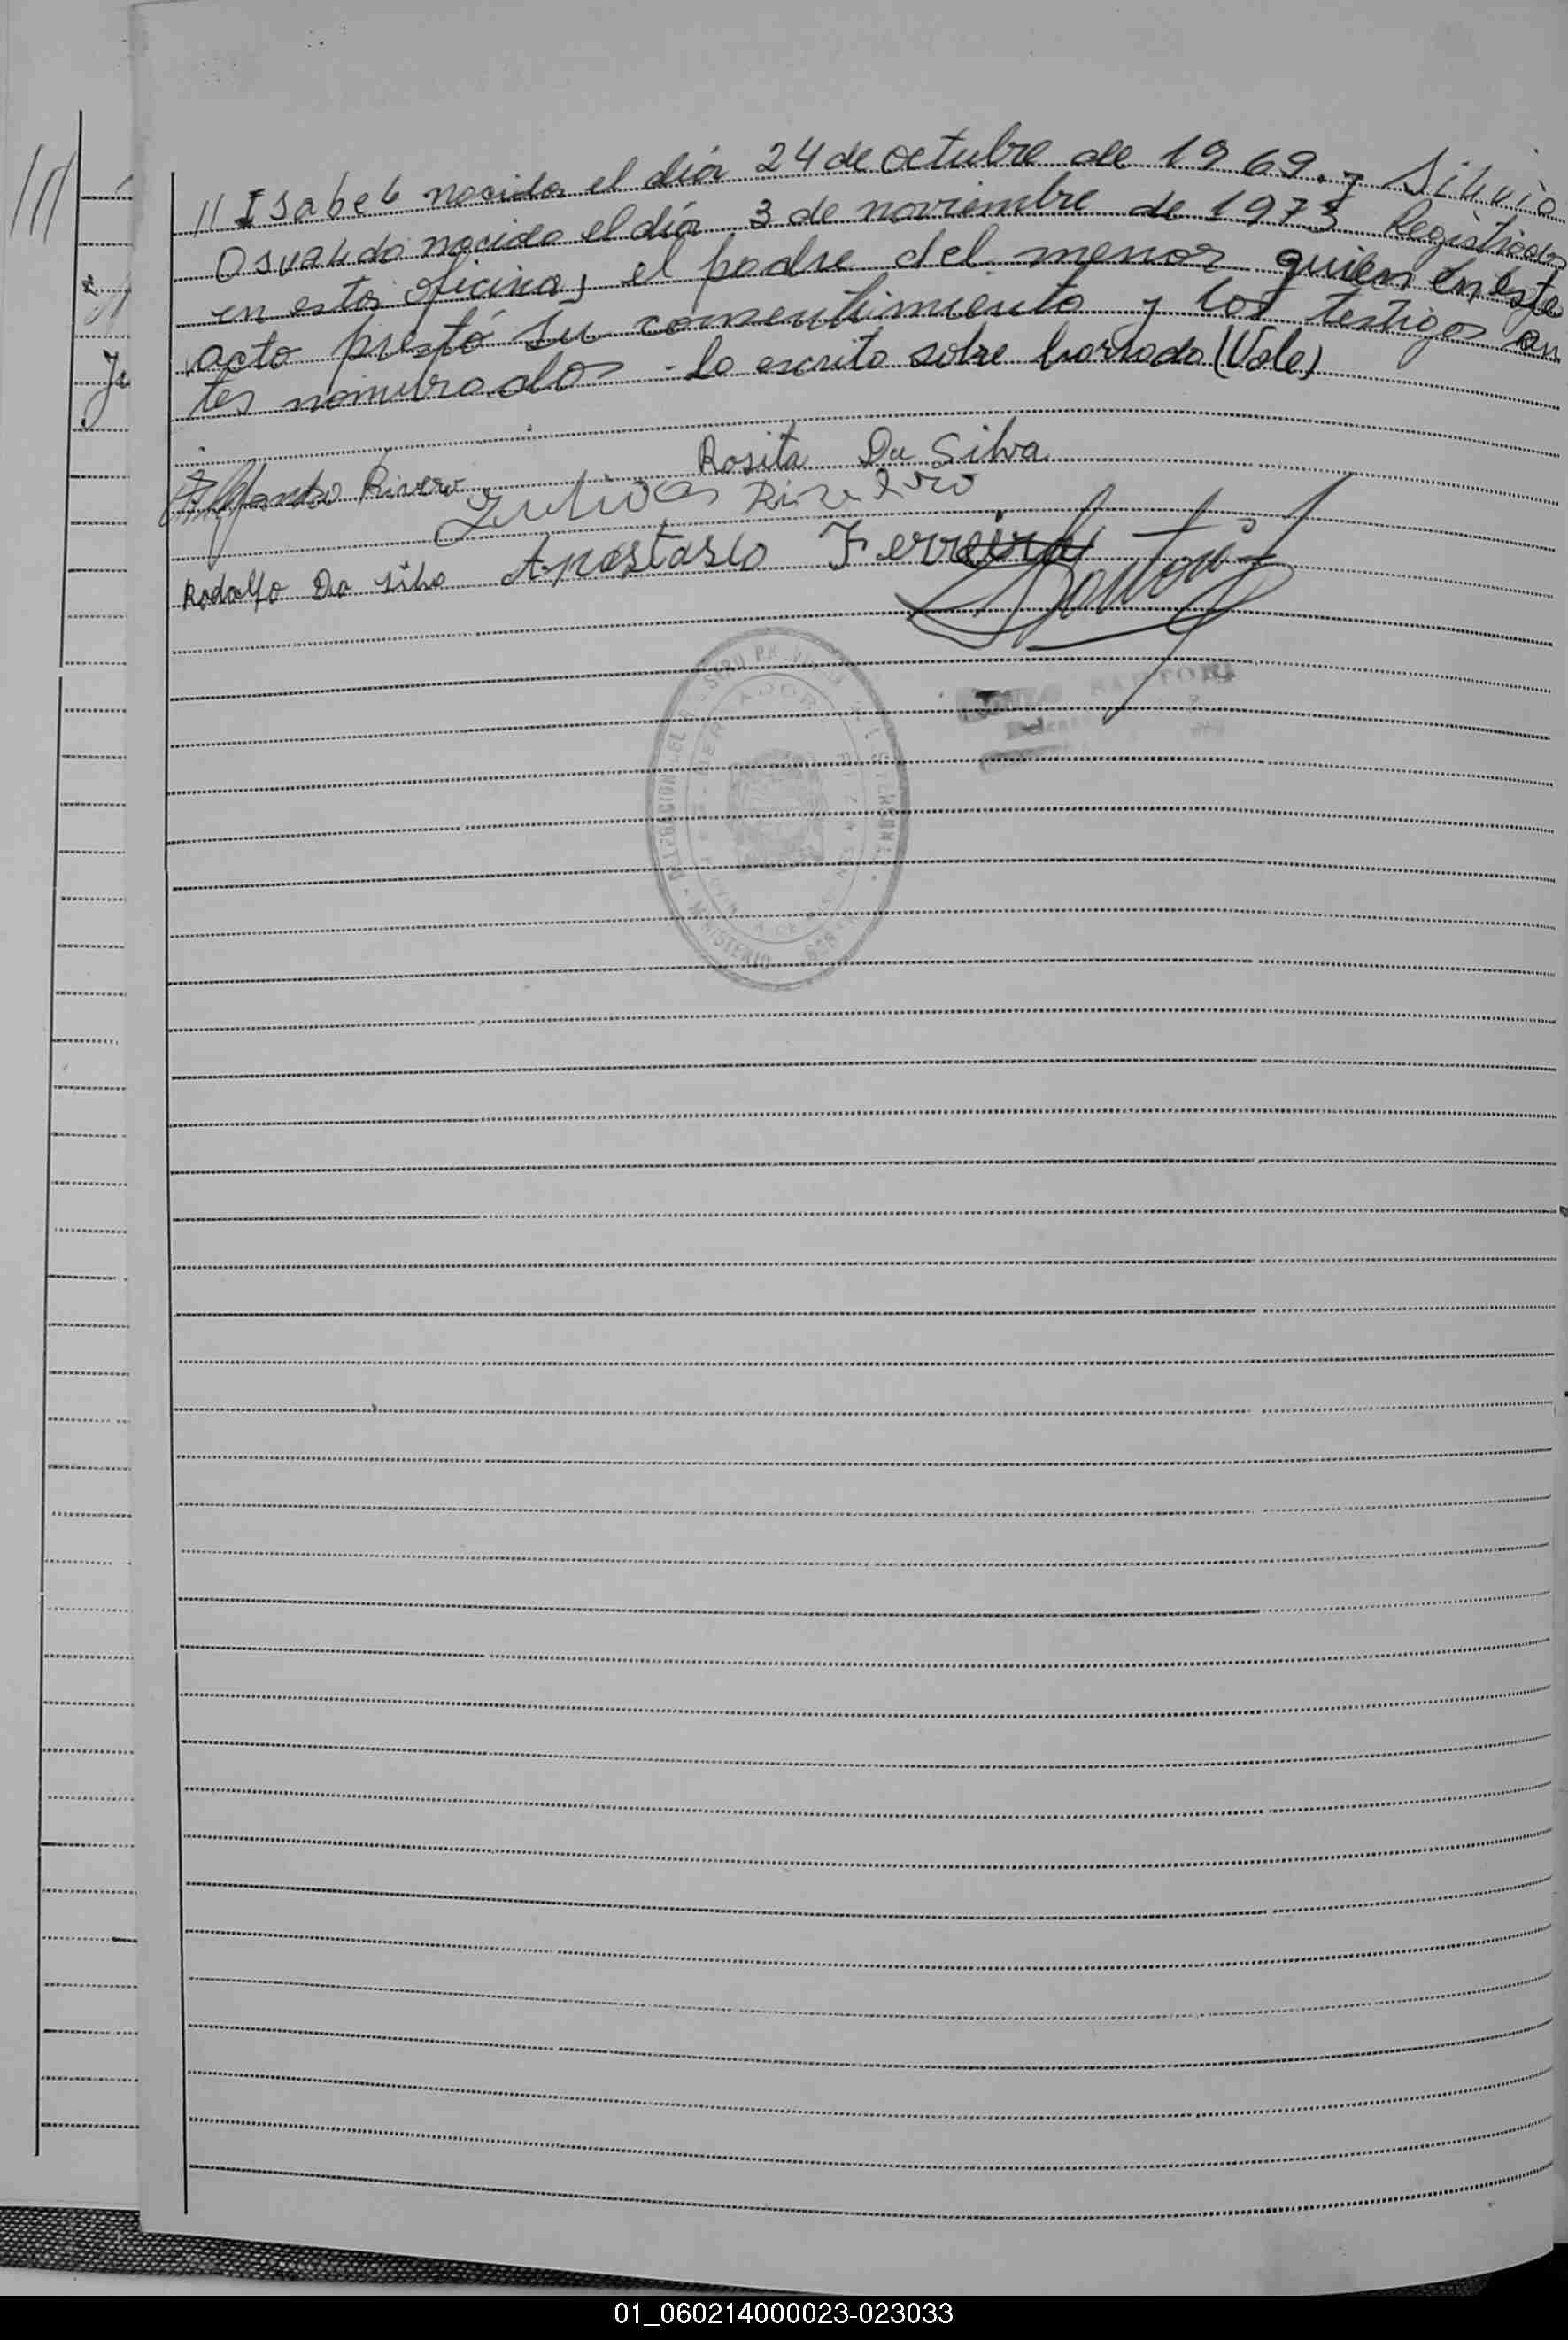 // Isabel nacida el día 24 de octubre de 1969. y Silvio
Osvaldo nacido el día 3 de noviembre de 1973 Registrados
en esta oficina, el padre del menor quien en este
acto prestó su consentimiento y los testigos an
tes nombrados - Lo escrito sobre borrado (Vale)
Rosita Da Silva
Rivero
Rodolfo Da silva Anastasio Ferreira
MINISTERIO
01_060214000023-023033